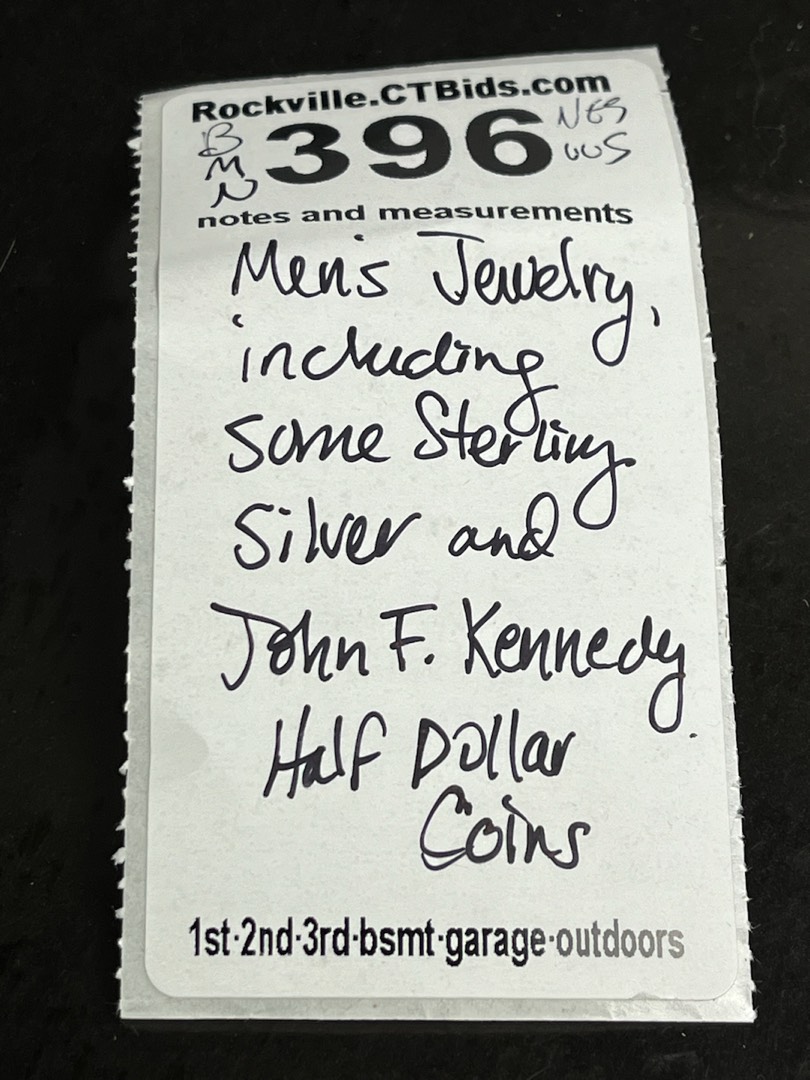 Rockville.CTBids.com
B
M
N
396
notes and measurements
Men's Jewelry,
including
some Sterling
Silver and
John F. Kennedy
Half Dollar
Coins
1st·2nd·3rd·bsmt·garage·outdoors